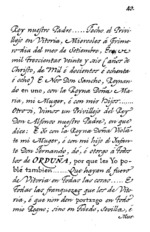 80.
Rey nuestro Padre..... Fecho el Privi-
llejo en Vitoria, Miercoles à prime-
ro dia del mes de Setiembre, Era de
mil trescientas veinte y seis (años de
Christo, de Mil è docientos è ochenta
è ocho) E Nos Don Sancho, Regnan-
te en uno, con la Reyna Doña Ma-
ria, mi Muger, è con mis Fijos.....
Otrosi, Vimos un Privillejo del Rey
Don Alfonso nuestro Padre, en que
dice: E Io con la Reyna Doña Violan-
te mi Muger, è con mi hijo el Infan-
te Don Fernando, do, è otorgo à Pobla-
dor de ORDUÑA, por que les Yo po-
blé tambien..... Que hayan el fuero
de Vitoria en Todas las cosas.... Et
Todas las franquezas que los de Vito-
ria, è que non den portazgo en todo
mio Regno; sino en Toledo, Sevilla, è
Mur-